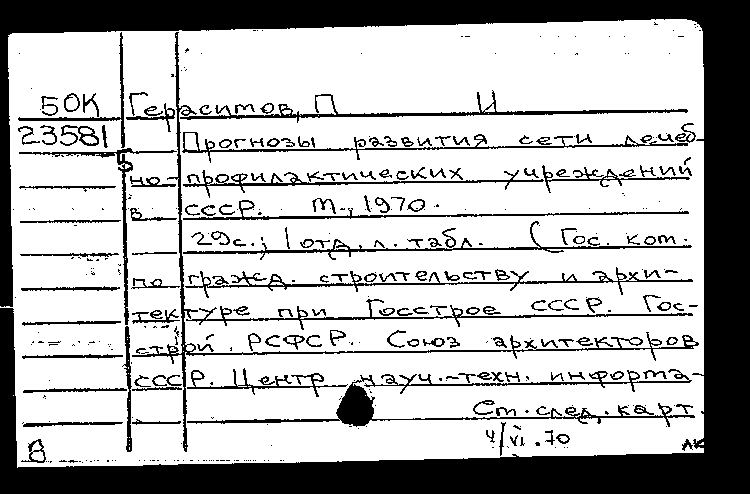 50К Герасимов, П И
23581 Прогнозы развития сети лечеб-
5
но-профилактических учреждений
в СССР. М., 1970.
29с.; 1отд.л.табл. (Гос. ком.
по гражд. строительству и архи-
тектуре при Госстрое СССР. Гос-
строй РСФСР. Союз архитекторов
СССР. Центр науч.-техн. информа-
См. след. карт.
4/VI.70
8 АК